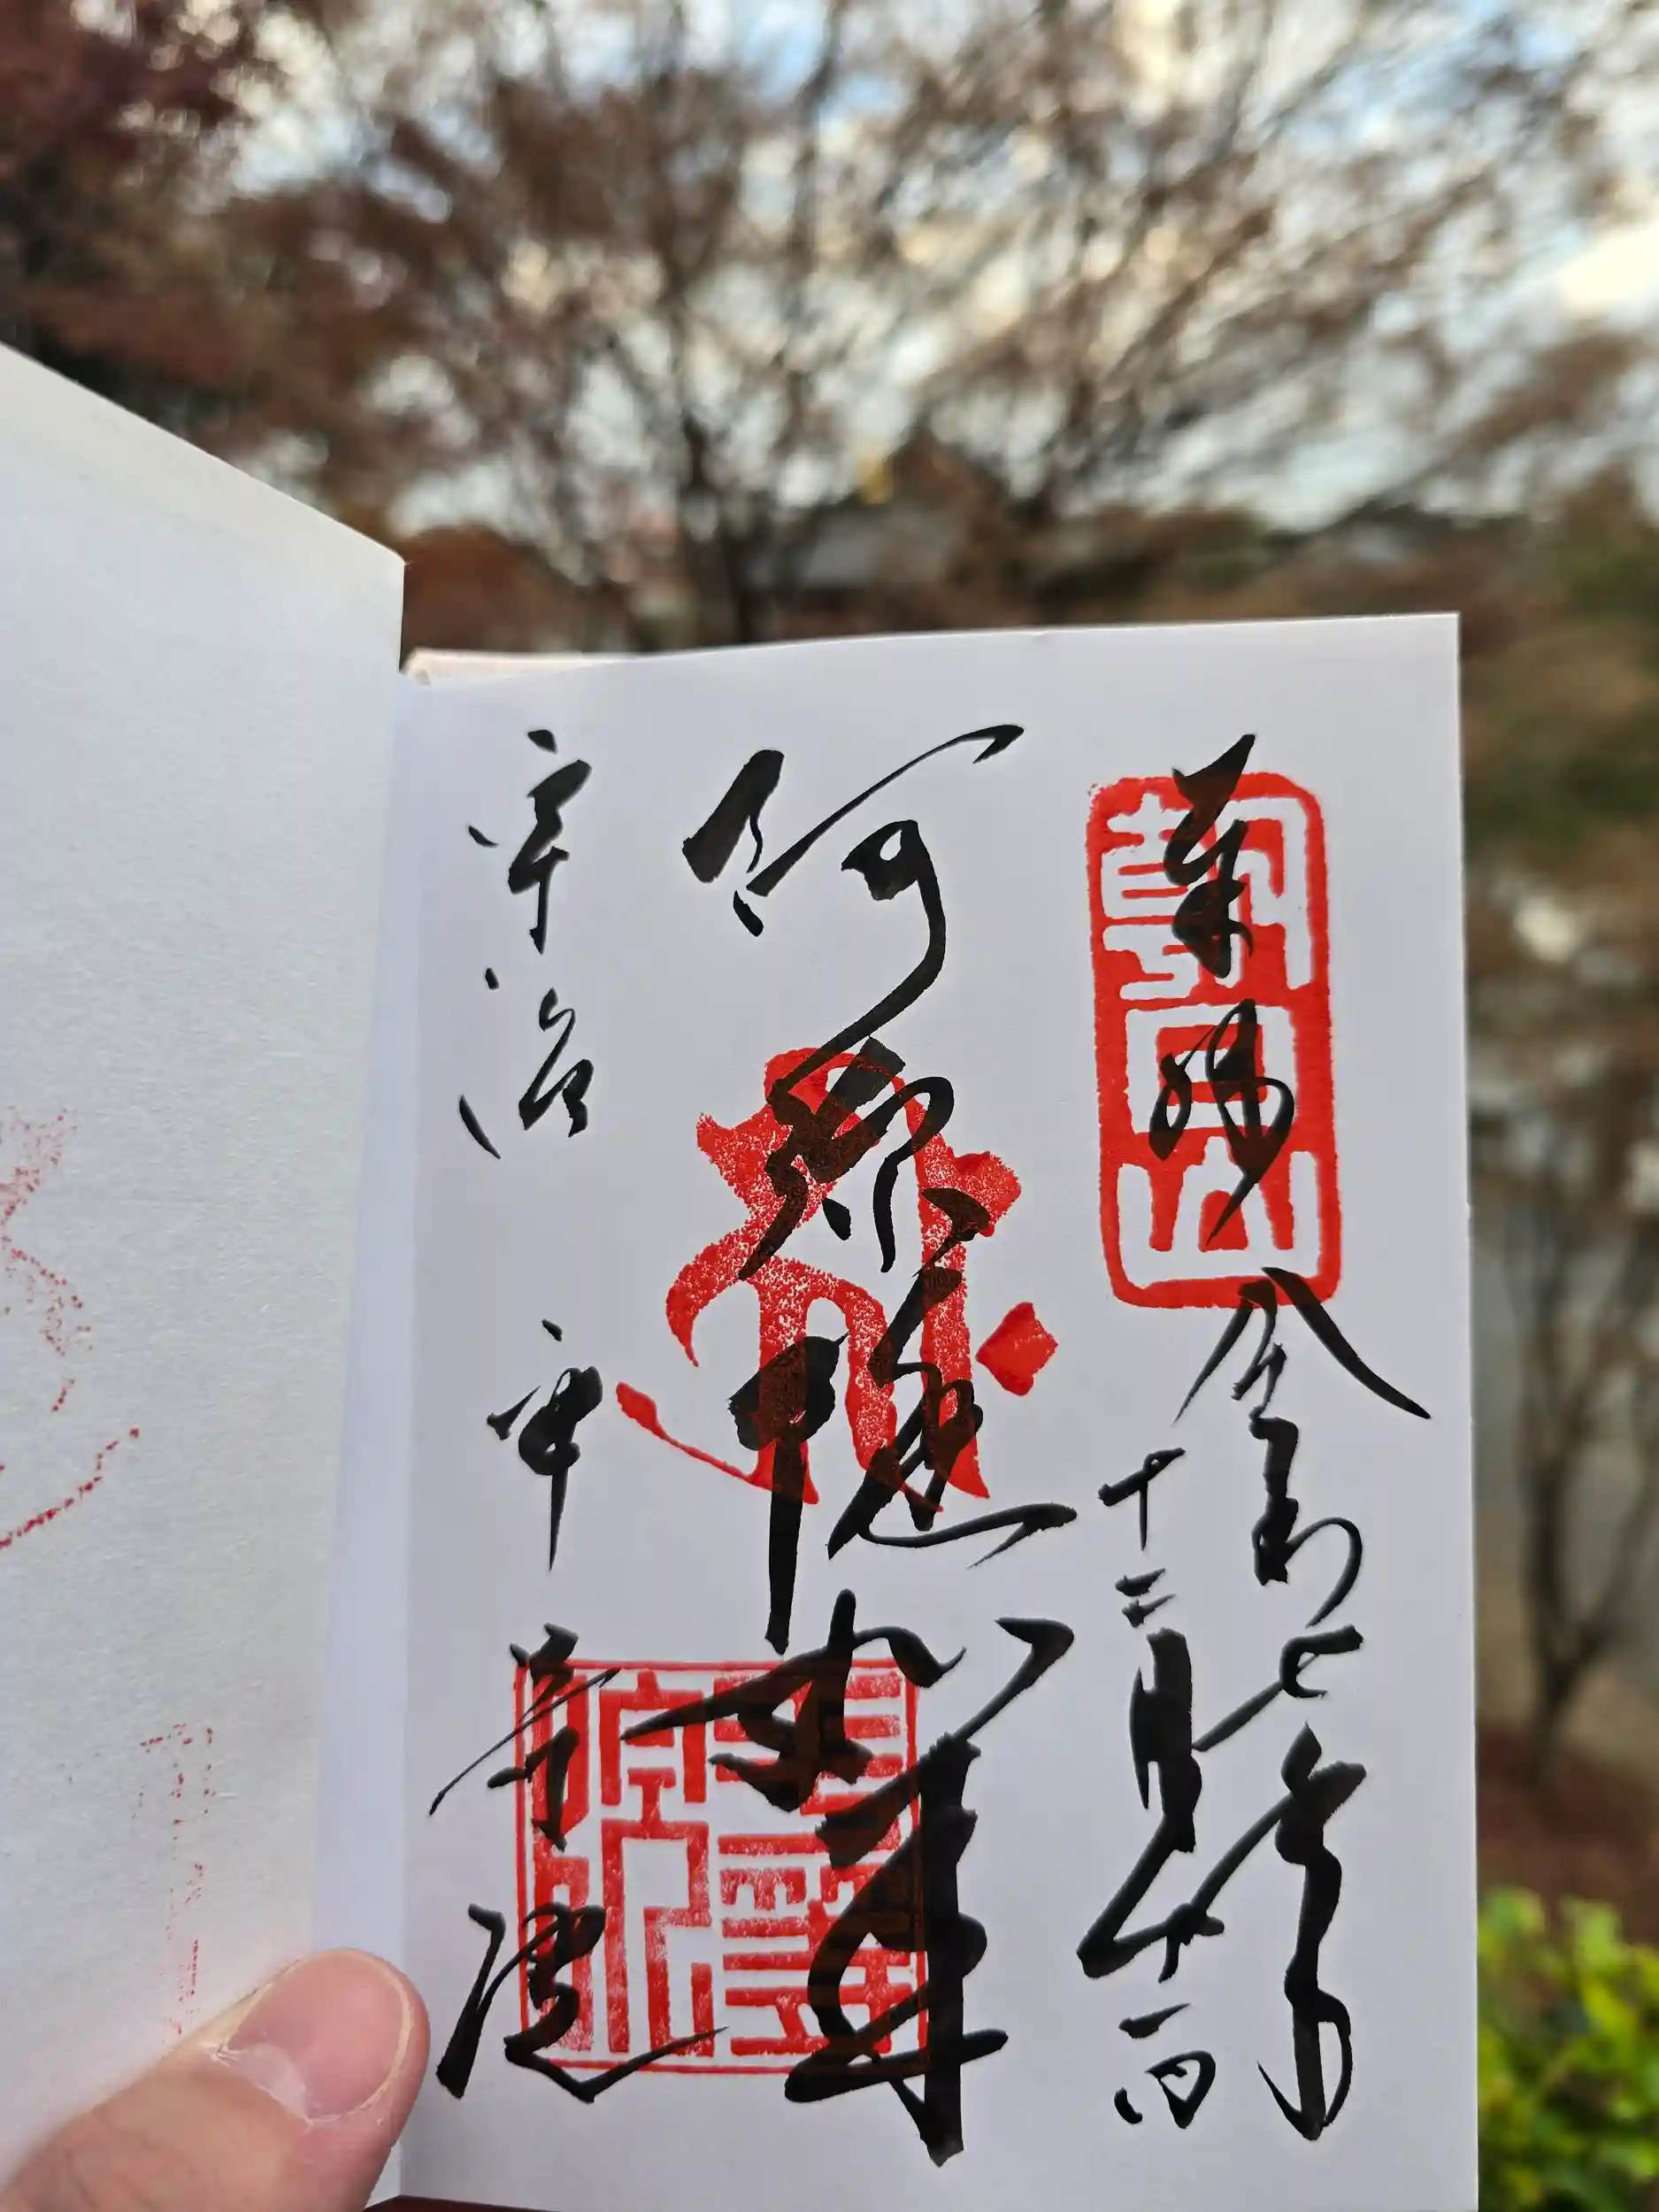 奉拝
朝日山
令和七年
十二月一日
阿弥陀如来
宇治
平等院